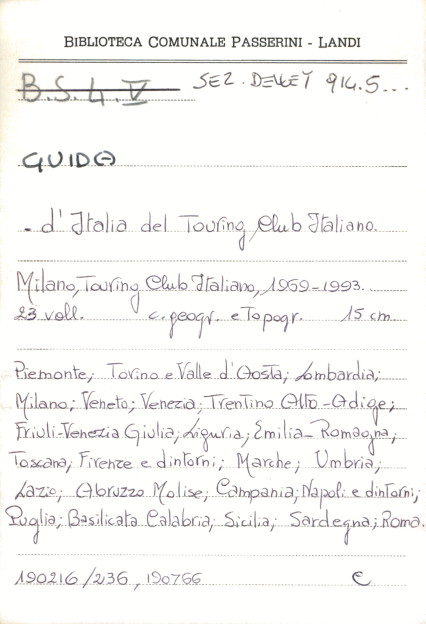 BIBLIOTECA COMUNALE PASSERINI - LANDI
B.S.4.V SEZ. DEWEY 914.5...
GUIDA
- d'Italia del Touring Club Italiano.
Milano, Touring Club Italiano, 1959-1993.
23 voll. c. geogr. e Topogr. 15 cm
Piemonte; Torino e Valle d'Aosta; Lombardia;
Milano; Veneto; Venezia; Trentino Alto-Adige;
Friuli-Venezia Giulia; Liguria; Emilia-Romagna;
Toscana; Firenze e dintorni; Marche; Umbria;
Lazio; Abruzzo Molise; Campania; Napoli e dintorni;
Puglia; Basilicata Calabria; Sicilia; Sardegna; Roma.
190216/236, 190766 C